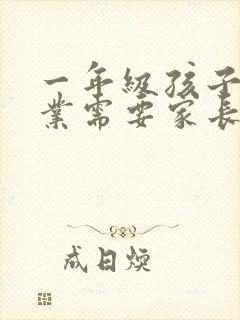 一年級孩子
業需要家長
成日煥